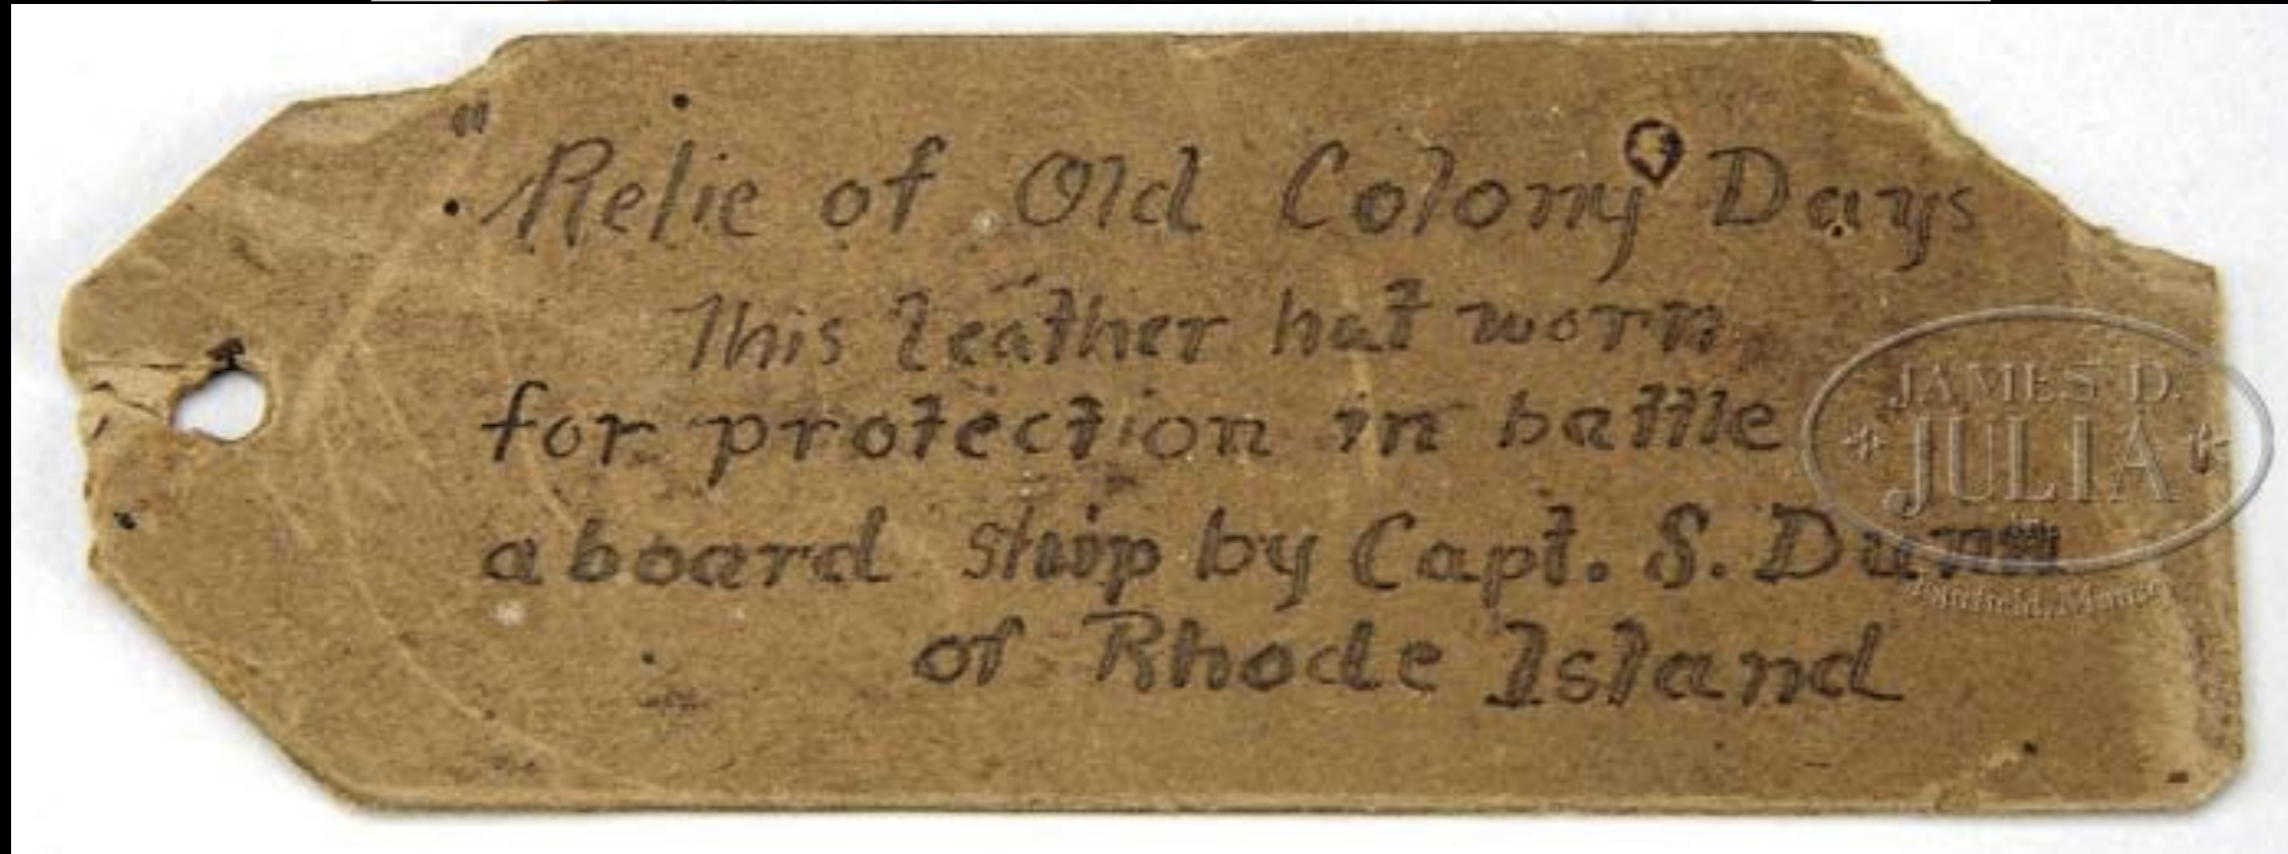 " Relic of Old Colony Days
This leather hat worn
for protection in battle
aboard ship by Capt. S. Dunn
of Rhode Island
JAMES D.
JULIA
Fairfield, Maine